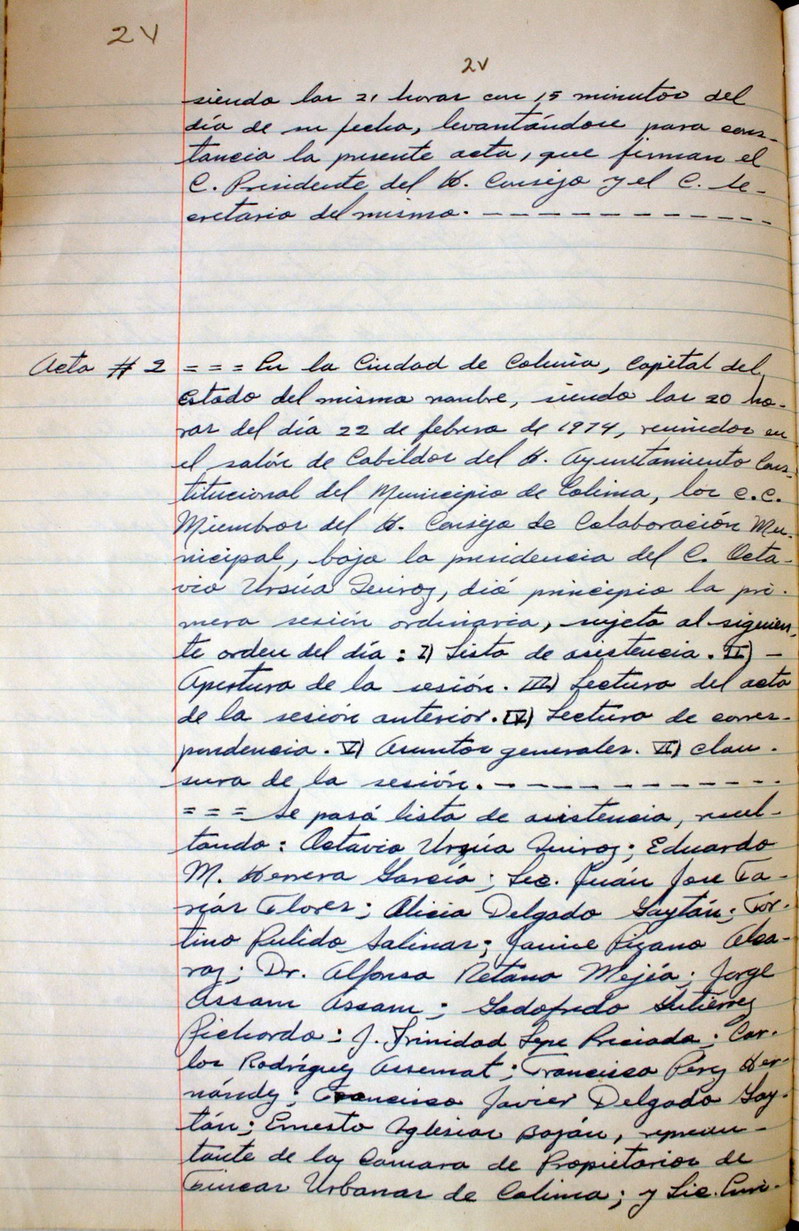 2V
2V
siendo las 21 horas con 15 minutos del
día de su fecha, levantándose para cons-
tancia la presente acta, que firman el
C. Presidente del H. Consejo y el C. Se-
cretario del mismo. - - - - - - - - - - - -
Acta # 2 = = = En la Ciudad de Colima, Capital del
Estado del mismo nombre, siendo las 20 ho-
ras del día 22 de febrero de 1974, reunidos en
el salón de Cabildos del H. Ayuntamiento Cons-
titucional del Municipio de Colima, los C.C.
Miembros del H. Consejo de Colaboración Mu-
nicipal, bajo la presidencia del C. Octa-
vio Ursúa Quiroz, dió principio la pri-
mera sesión ordinaria, sujeta al siguien-
te orden del día: I) Lista de asistencia. II) -
Apertura de la sesión. III) Lectura del acta
de la sesión anterior. IV) Lectura de corres-
pondencia. V) Asuntos generales. VI) Clau-
sura de la sesión. - - - - - - - - - - -
= = = Se pasó lista de asistencia, resul-
tando: Octavio Ursúa Quiroz; Eduardo
M. Herrera García; Lic. Juán José Fa-
rías Flores; Alicia Delgado Gaytán; For-
tino Pulido Salinas; Janice Pizano Alca-
raz; Dr. Alfonso Retano Mejía; Jorge
Assam Assam; Godofredo Gutiérrez
Pichardo; J. Trinidad Lepe Preciado; Car-
los Rodríguez Assemat; Francisco Pérez Her-
nández; Francisco Javier Delgado Gay-
tán; Ernesto Iglesias Baján, represen-
tante de la Camara de Propietarios de
Fincas Urbanas de Colima; y Lic. Enri-